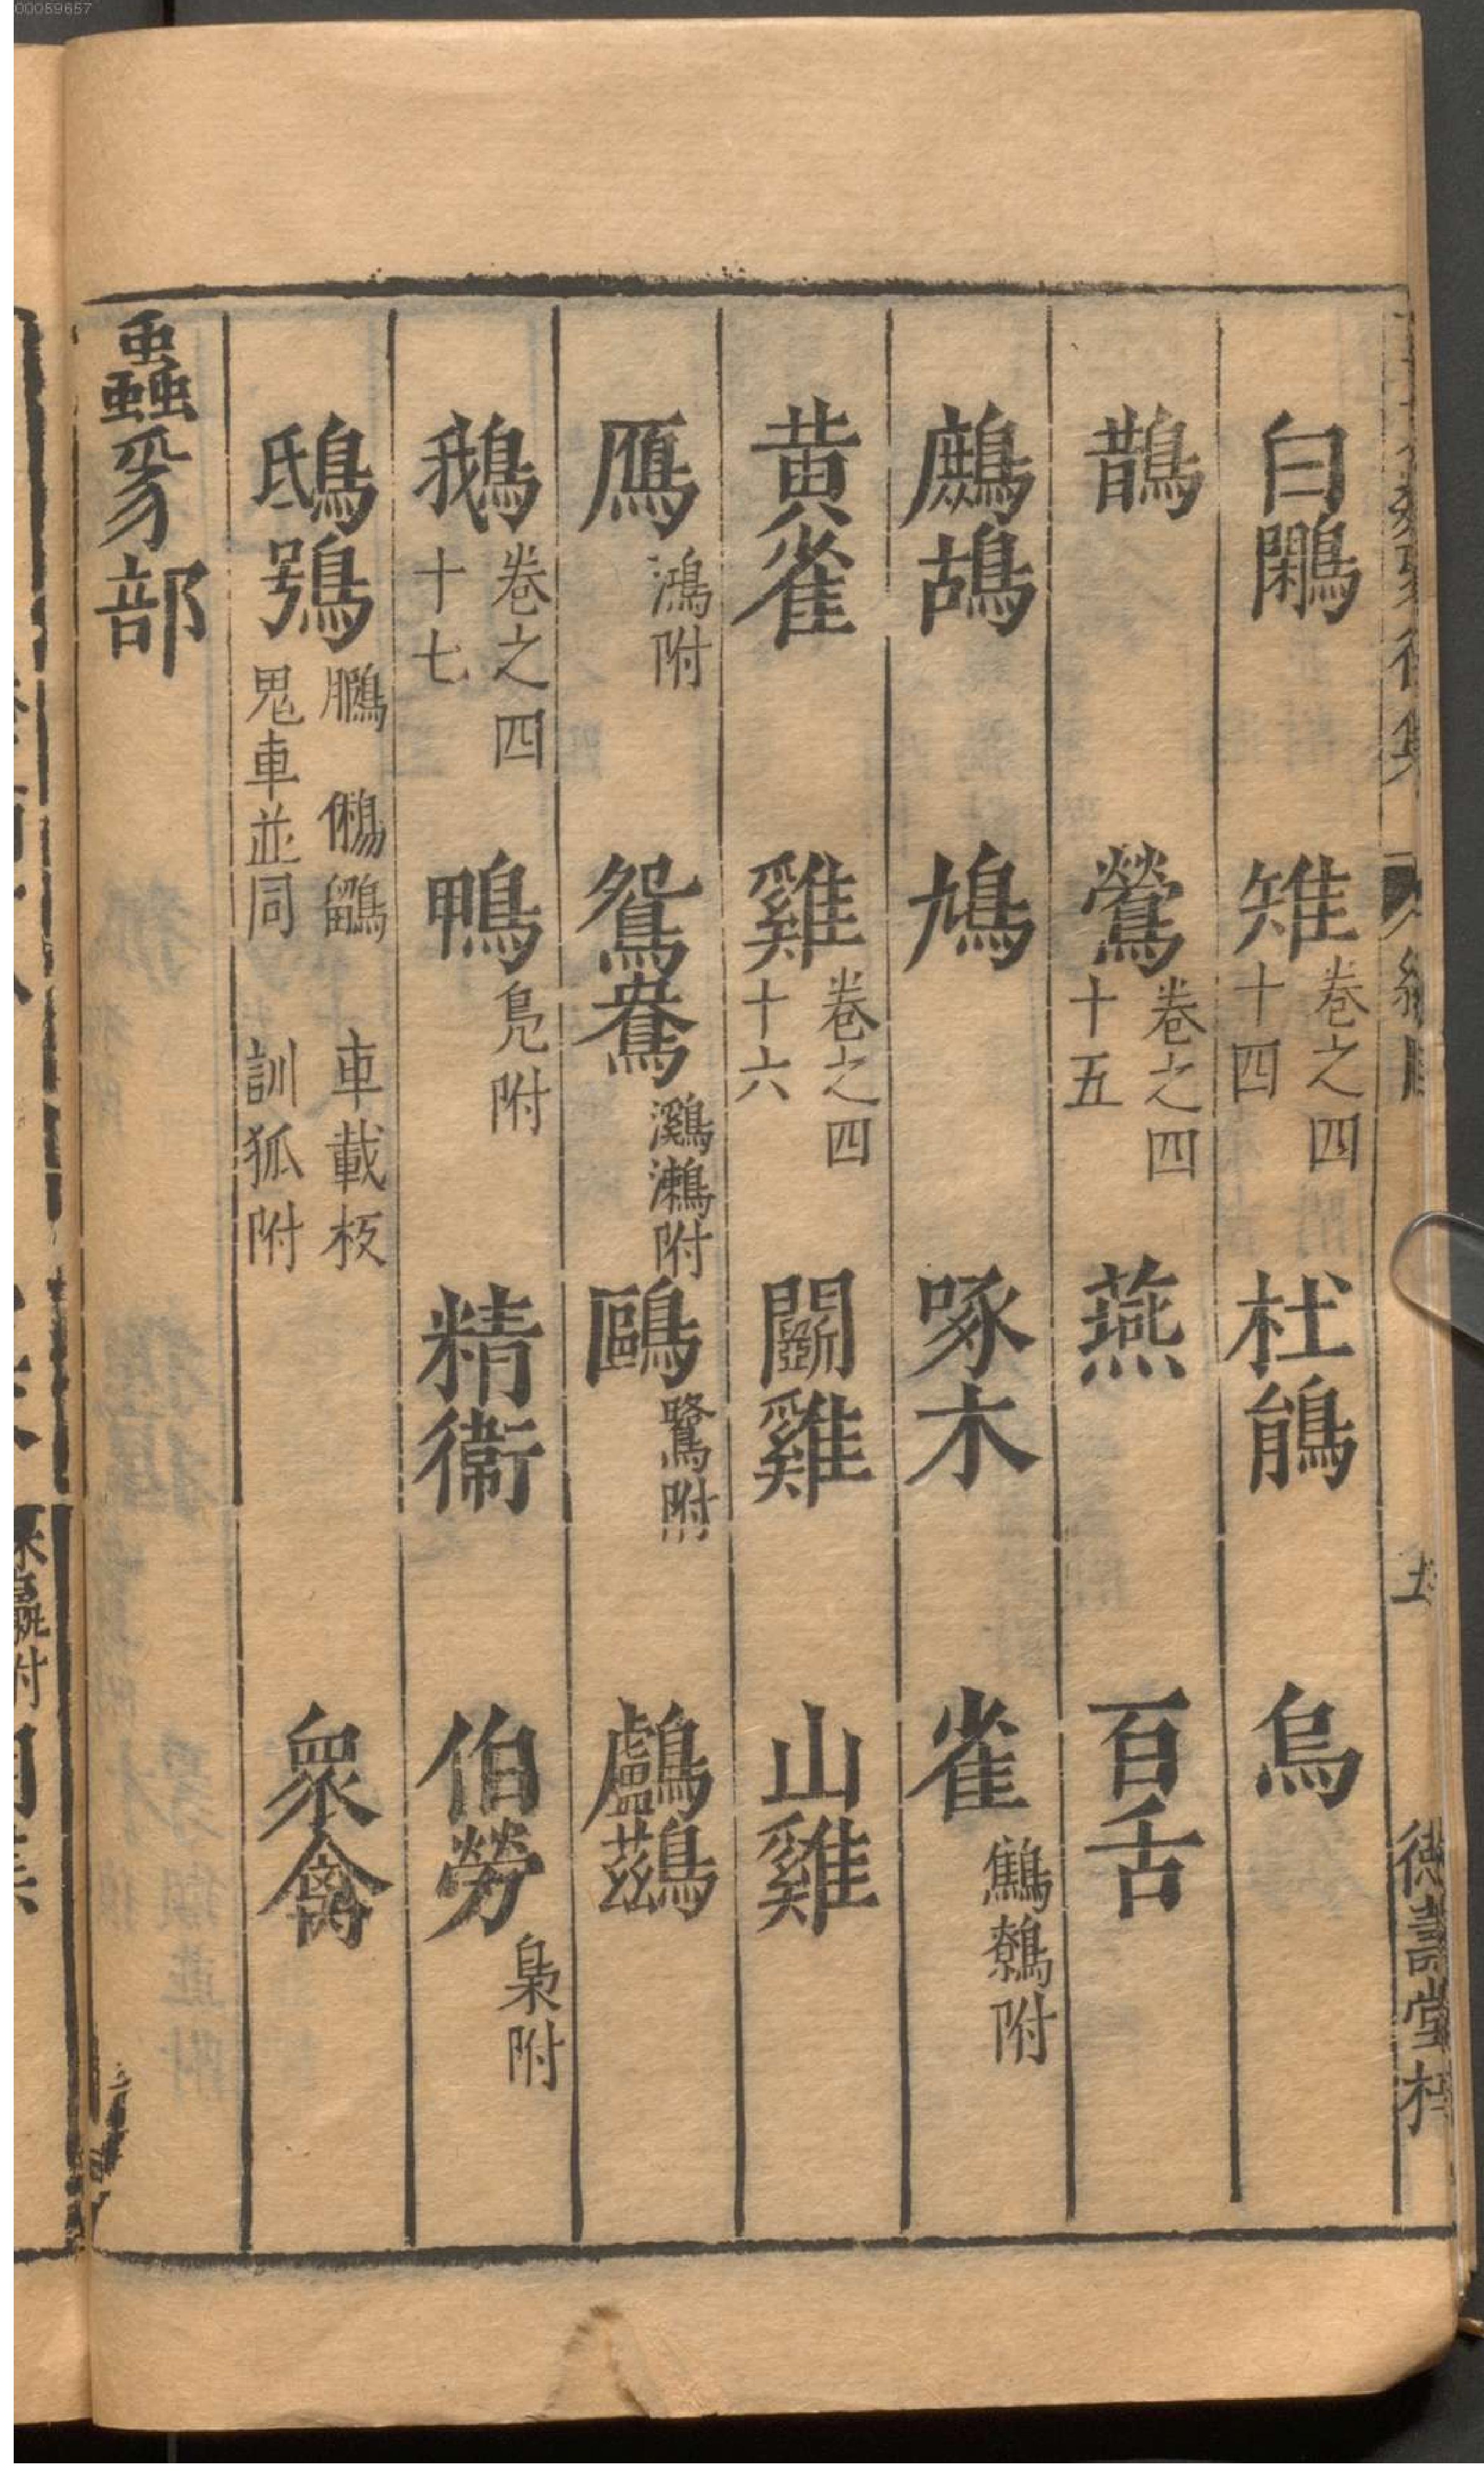 00059657
白鷴 雉 卷之四十四 杜鵑 烏
鵲 鶯 卷之四十五 燕 百舌
鷓鴣 鳩 啄木 雀 鷦鷯附
黄雀 雞 卷之四十六 鬭雞 山雞
鴈 鴻附 鴛鴦 鸂𪆟附 鷗 鷺附 鸕鶿
鵝 卷之四十七 鴨 鳧附 精衞 伯勞 梟附
鴟鴞 鵩 鵂鶹 車載板 鬼車並同 訓狐附 衆禽
蟲豸部
德壽堂梓